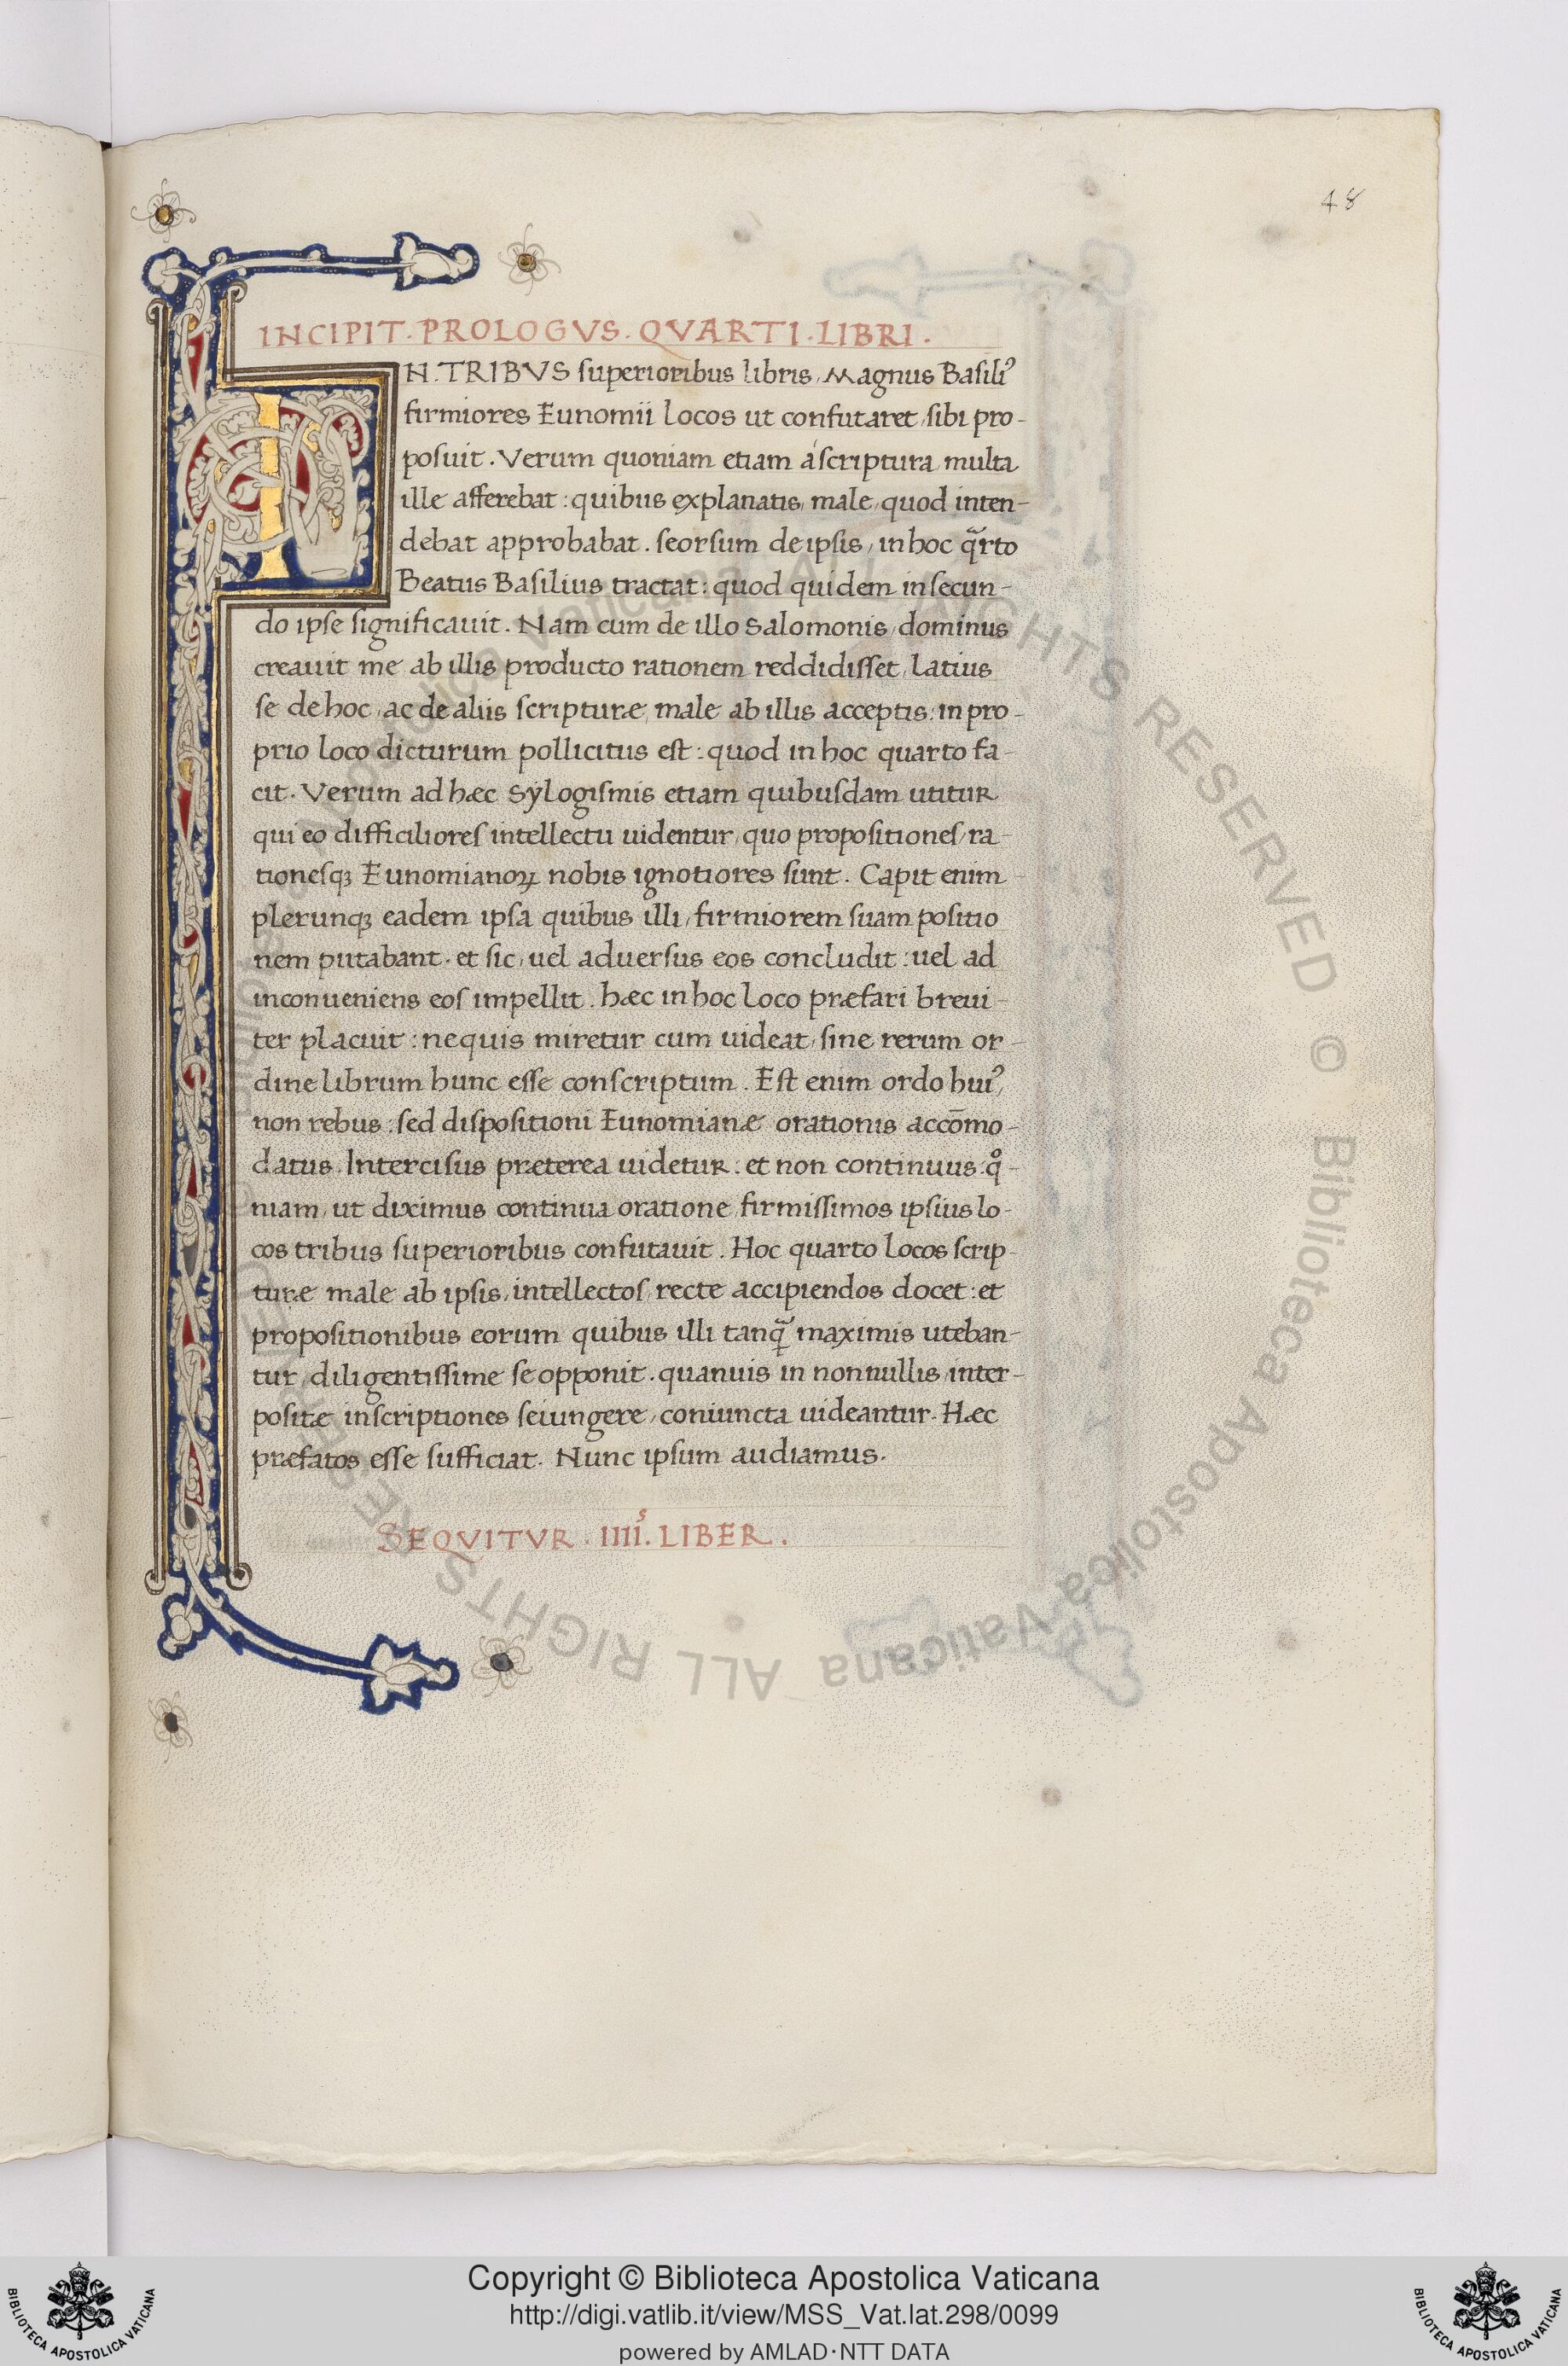 48
INCIPIT. PROLOGVS. QVARTI. LIBRI.
IN. TRIBVS superioribus libris, Magnus Basiliꝰ
firmiores Eunomii locos ut confutaret, sibi pro-
posuit. Verum quoniam etiam a scriptura multa
ille afferebat: quibus explanatis, male, quod inten-
debat approbabat. seorsum de ipsis, in hoc q̃rto
Beatus Basilius tractat: quod quidem in secun-
do ipse significauit. Nam cum de illo Salomonis, dominus
creauit me, ab illis producto rationem reddidisset, latius
se de hoc, ac de aliis scripturæ, male ab illis acceptis: in pro-
prio loco dicturum pollicitus est: quod in hoc quarto fa-
cit. Verum ad hæc Sylogismis etiam quibusdam utitur
qui eo difficiliores intellectu uidentur, quo propositiones, ra-
tionesqꝫ Eunomianoꝝ nobis ignotiores sunt. Capit enim
plerunqꝫ eadem ipsa quibus illi, firmiorem suam positio
nem putabant. et sic, uel aduersus eos concludit: uel ad
inconueniens eos impellit. hæc in hoc loco præfari breui-
ter placuit: nequis miretur cum uideat, sine rerum or-
dine librum hunc esse conscriptum. Est enim ordo huiꝰ,
non rebus: sed dispositioni Eunomianæ orationis accōmo-
datus. Intercisus præterea uidetur: et non continuus: qͦ-
niam, ut diximus continua oratione, firmissimos ipsius lo-
cos tribus superioribus confutauit. Hoc quarto locos scrip-
turæ male ab ipsis, intellectos, recte accipiendos docet: et
propositionibus eorum quibus illi tanq̃ maximis uteban-
tur, diligentissime se opponit. quanuis in nonnullis, inter-
positæ inscriptiones seiungere, coniuncta uideantur. Hæc
præfatos esse sufficiat. Nunc ipsum audiamus.
SEQVITVR. IIIIˢ. LIBER.
Biblioteca Apostolica Vaticana ALL RIGHTS RESERVED © Biblioteca Apostolica Vaticana ALL RIGHTS RESERVED ©
Copyright © Biblioteca Apostolica Vaticana
http://digi.vatlib.it/view/MSS_Vat.lat.298/0099
powered by AMLAD·NTT DATA
BIBLIOTECA APOSTOLICA VATICANA
BIBLIOTECA APOSTOLICA VATICANA